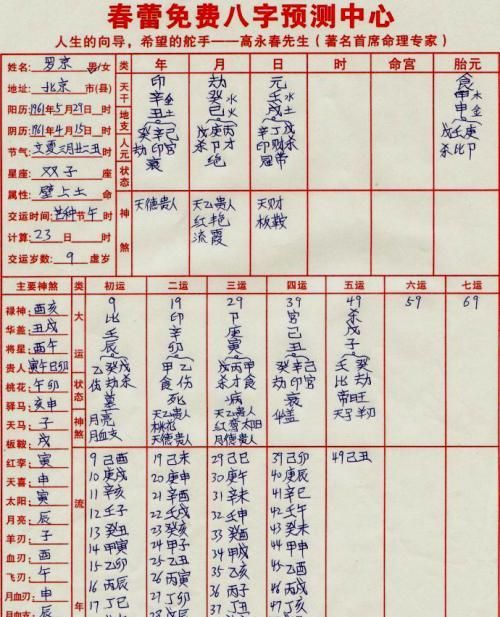 春蕾免费八字预测中心
人生的向导，希望的舵手——高永春先生（著名首席命理专家）
姓名：罗京 男/女 类 年 月 日 时 命宫 胎元
地址：北京 市(县) 天干 印 劫 元 食
阳历：1961年5月29日 时 辛金 癸水 壬水 甲木
阴历：1961年4月15日 时 地支 丑土 巳火 戌土 申金
人元 癸辛己 戊庚丙 辛丁戊 戊壬庚
劫印官 杀卩才 印财杀 杀比卩
状态 衰 绝 冠带
星座：双子 座
属性：壁上土 命
交运时间：芒种节午 时 神煞 天德贵人 天乙贵人 天财
红艳 板鞍
流霞
计算：23 日 时
交运岁数：9 虚岁
主要神煞 类 初运 二运 三运 四运 五运 六运 七运
大运 9 19 29 39 49 59 69
禄神：酉亥 比 印 卩 官 杀
华盖：丑戌 壬 辛 庚 己 戊
将星：酉午 辰 卯 寅 丑 子
贵人：寅午巳卯 乙癸戊 甲乙 戊丙甲 癸辛己 壬癸
桃花：午卯 状态 伤劫杀 食伤 杀才食 劫印官 比劫
驿马：亥申 墓 死 病 衰 帝旺
天马：子 神煞 月亮 天乙贵人 天乙贵人 华盖
板鞍：戌 月血支 桃花 红鸾太阳
天德贵人 月德贵人
红孪：寅 流年 9己酉 19己未 29己巳 39己卯 49己丑
天喜：申 10庚戌 20庚申 30庚午 40庚辰
太阳：寅 11辛亥 21辛酉 31辛未 41辛巳
月亮：辰 12壬子 22壬戌 32壬申 42壬午
羊刃：子 13癸丑 23癸亥 33癸酉 43癸未
血刃：酉 14甲寅 24甲子 34甲戌 44甲申
飞刃：午 15乙卯 25乙丑 35乙亥 45乙酉
月血刃：申 16丙辰 26丙寅 36丙子 46丙戌
月血支：辰 17丁巳 27丁卯 37丁丑 47丁亥